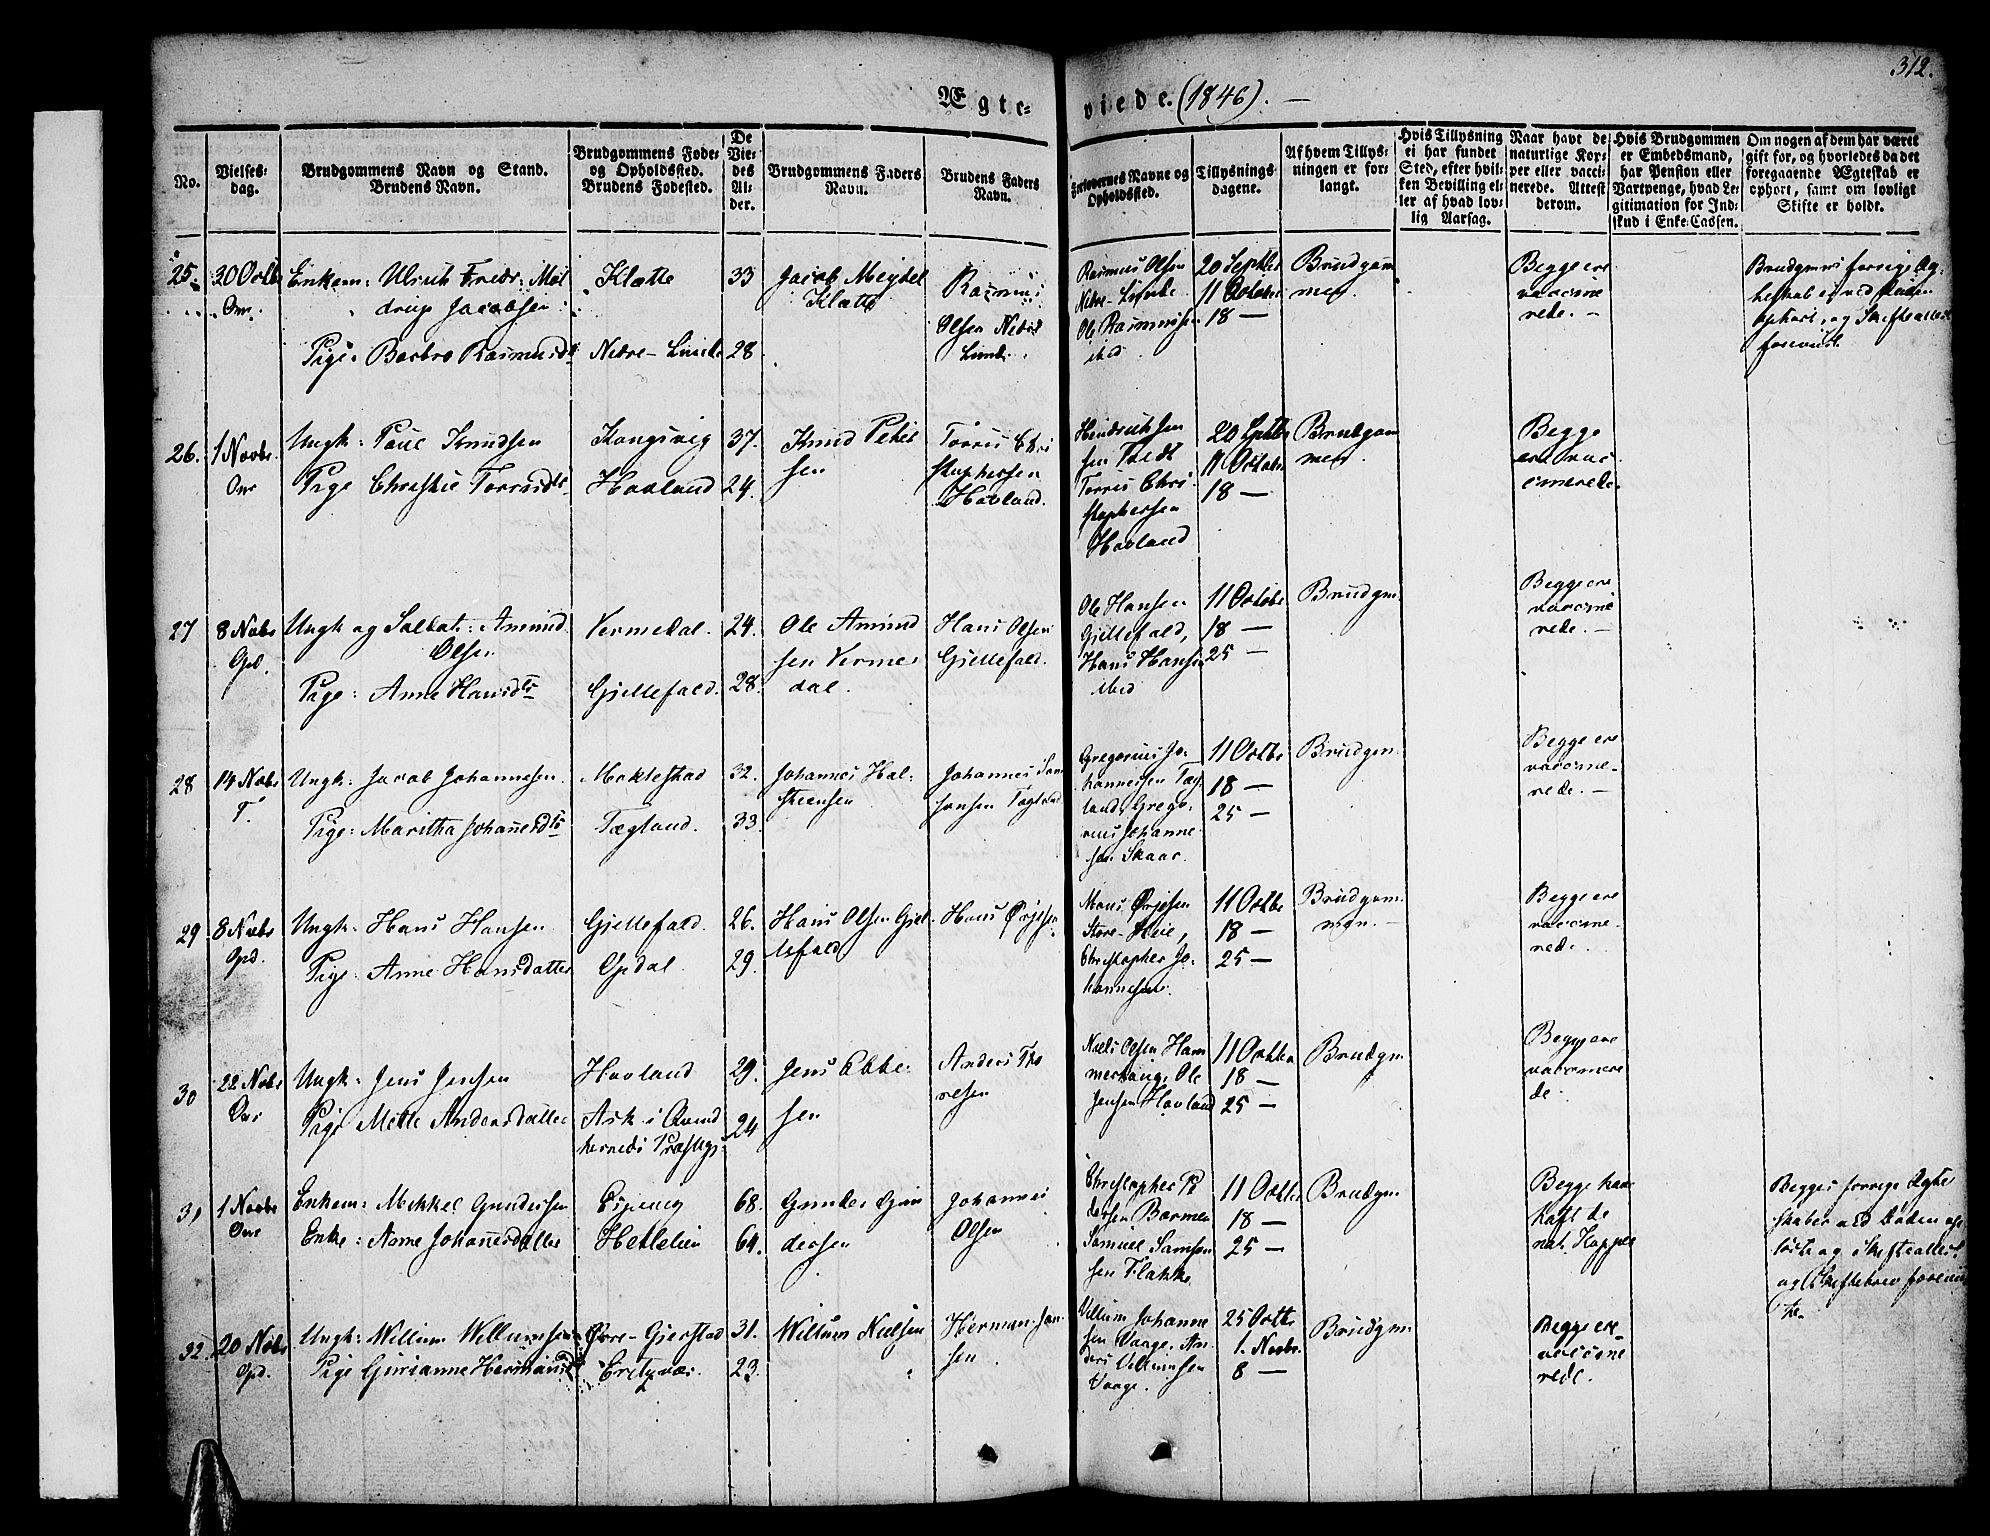 312.
Ægte-
viede. (1846). —
No.
Vielses-
dag.
Brudgommens Navn og Stand.
Brudens Navn.
Brudgommens Føde-
og Opholdssted.
Brudens Fødested.
De
Vie-
des
Al-
der.
Brudgommens Faders
Navn.
Brudens Faders
Navn.
Forlovernes Navne og
Opholdssted.
Tillysnings-
dagene.
Af hvem Tillys-
ningen er for-
langt.
Hvis Tillysning
ei har fundet
Sted, efter hvil-
ken Bevilling el-
ler af hvad lov-
lig Aarsag.
Naar havt de
naturlige Kop-
per eller vacci-
nerede. Attest
derom.
Hvis Brudgommen
er Embedsmand,
har Pension eller
Vartpenge, hvad Le-
gitimation for Ind-
skud i Enke-Cassen.
Om nogen af dem har været
gift før, og hvorledes da det
foregaaende Ægteskab er
ophørt, samt om lovligt
Skifte er holdt.
25.
30 Octbr
Enkem: Ulrich Fredr: Mol
drup Jacobsen
Pige: Barbro Rasmusdtr
Klatte
Nedre-Linde
33
28
Jacob Meydel
Klatte
Rasmus
Olsen Nedre
Linde
Rasmus Olsen
Nedre-Linde
Ole Rasmussen
ibid
20 Septbr
11 October
18 —
Brudgom
men.
Begge ere
vaccine
rede. —
Brudgoms forrige Æg-
teskab er ved Døden
ophørt, og Skifteattest
foreviist.
26.
1 Novbr.
Ungk: Poul Knudsen
Pige Christie Torrisdtr
Kongsvig
Hovland
37.
24.
Knud Peter
sen
Torris Chri
stophersen
Hovland.
Hendrik
sen Tvedt
Torris Chri
stophersen
Hovland
20 Septbr
11 October
18 —
Brudgom
men
Begge
ere vac
cinerede.
27
8 Novbr
Opd.
Ungk og Soldat: Amund
Olsen
Pige: Anne Hansdtr
Vermedal.
Gjellefald.
24.
28.
Ole Amund
sen Verme
dal.
Hans Olsen
Gjellefald.
Ole Hansen
Gjellefald,
Hans Hansen
ibid
11 Octobr
18 —
25 —
Brudgm.
Begge ere
vaccine
rede. —
28
14 Novbr
T.
Ungk: Jacob Johannesen.
Pige: Maritha Johannesdtr
Moklestad
Tægland.
32.
33.
Johannes Hal-
steensen
Johannes Sam
sonsen Tægland
Gregorius Jo-
hannessen Tæg
land, Grego-
rius Johanne
sen Skaar.
11 Octbr
18 —
25 —
Brudgm.
Begge ere
vaccine-
rede. —
29
8 Novbr
Opd.
Ungk: Hans Hansen
Pige: Anne Hansdatter
Gjellefald.
Opdal.
26.
29.
Hans Olsen Gjel-
lefald
Hans Ørjesen
Mons Ørjesen
Store-
Christopher Jo-
hannesen.
11 Octbr
18 —
25 —
Brudgom
men.
Begge ere
vaccine-
rede.
30
22 Novbr
Ungk: Jens Jensen
Pige Mette Andersdatter
Hovland
Ask i Qvind
herreds Præstegj
29.
24
Jens Ebbe
sen
Anders Tho
resen
Niels Olsen Ham
merhaug, Ole
Jensen Hovland
11 Octbr
18 —
25 —
Brudgm
Begge ere
vaccinere
de.
31
1 Novbr
Enkem: Mikkel Gundersen
Enke: Anne Johannesdatter
Hetlelien
68.
64.
Gunder Gun
dersen
Johannes
Olsen
Christopher Pe
dersen Barmen
Samuel Samson
sen Flakke
11 Octbr
18 —
25 —
Brudgm
Begge have
havt de
nat. Kopper
Begges forrige Ægte
skaber ved Døden op
løste og Skifteattest
og Skiftebrev foreviis
te.
32.
20 Novbr
Opd.
Ungk: Willum Willumsen
Pige Gurianne Hermansd
Øvre-Gjerstad
31.
23.
Willum Nielsen
Herman Jon
sen
Villum Johanne
sen Vaage, An
ders Villumsen
Vaage.
25 Octbr
1. Novbr.
8 —
Brudgm
Begge ere
vaccine
rede.